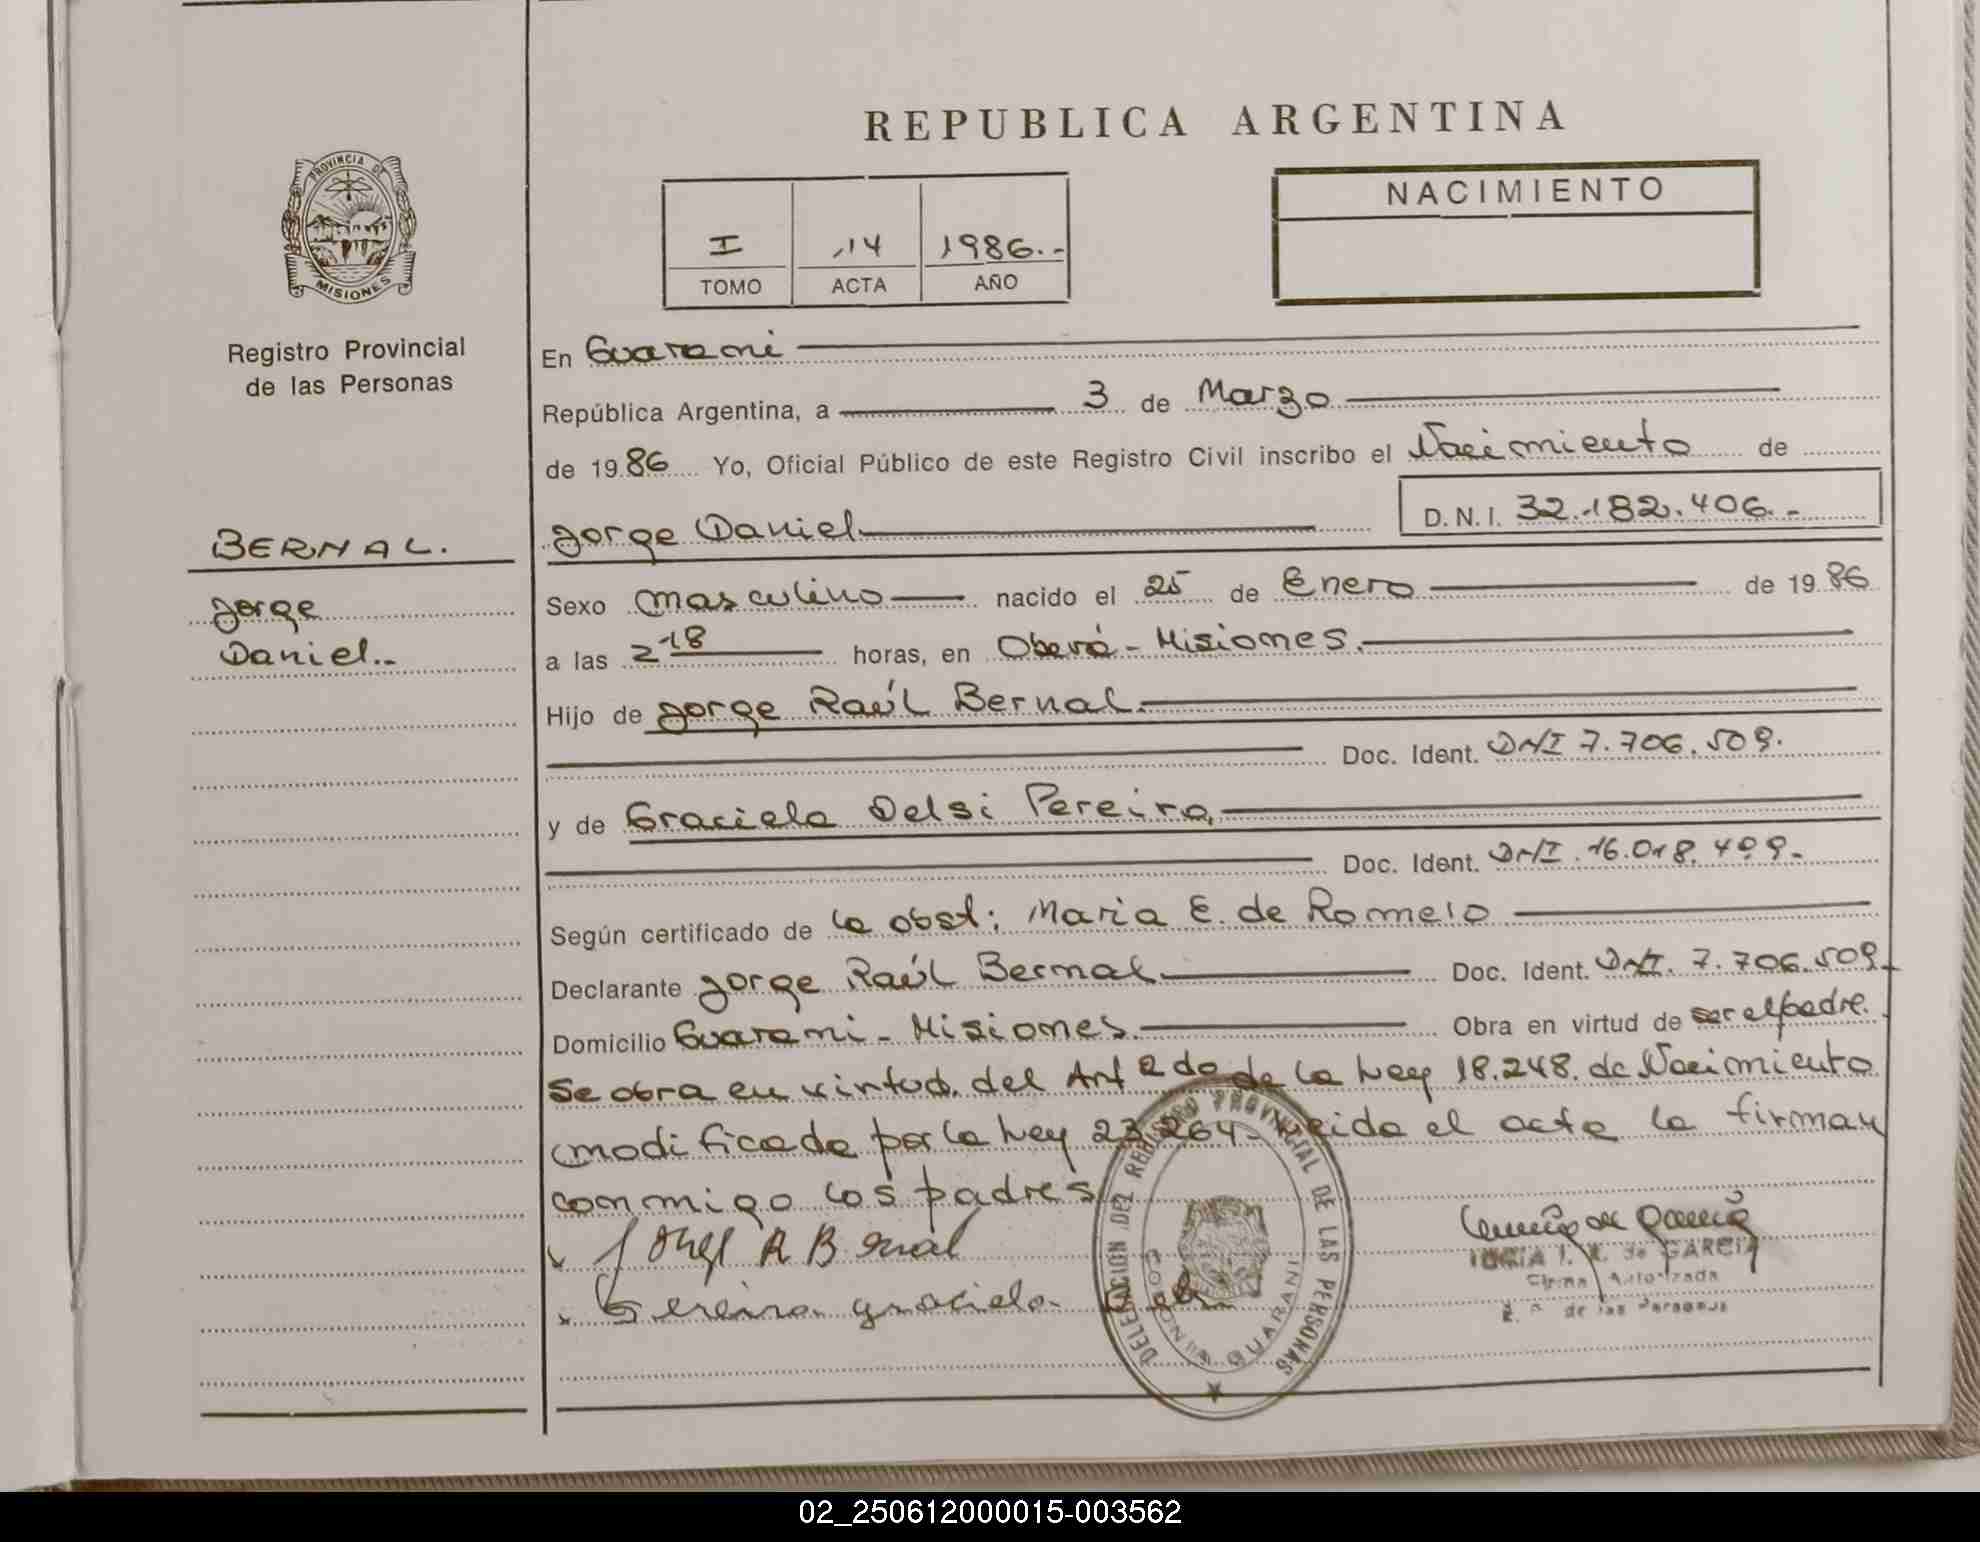 REPUBLICA ARGENTINA
PROVINCIA DE MISIONES
Registro Provincial
de las Personas
I 14 1986.-
TOMO ACTA AÑO
NACIMIENTO
BERNAL.
Jorge
Daniel.-
En Guarani
República Argentina, a 3 de Marzo
de 1986 Yo, Oficial Público de este Registro Civil inscribo el Nacimiento de
Jorge Daniel D.N.I. 32.182.406.-
Sexo masculino nacido el 25 de Enero de 1986
a las 2 18 horas, en Oberá - Misiones.
Hijo de Jorge Raúl Bernal.
Doc. Ident. DNI 7.706.509.
y de Graciela Delsi Pereira,
Doc. Ident. DNI. 16.018.409.-
Según certificado de la obst: Maria E. de Romero
Declarante Jorge Raúl Bernal Doc. Ident. DNI. 7.706.509.
Domicilio Guarani - Misiones. Obra en virtud de ser el padre.
Se obra en virtud. del Art 2do de la Ley 18.248. de Nacimiento
modificada por la Ley 23.264 - Leida el acta la firman
conmigo los padres
Jorge R Bernal
Pereira graciela
DELEGACION DEL REGISTRO PROVINCIAL DE LAS PERSONAS
COLONIA GUARANI
de GARCIA
Firma Autorizada
de las Personas
02_250612000015-003562